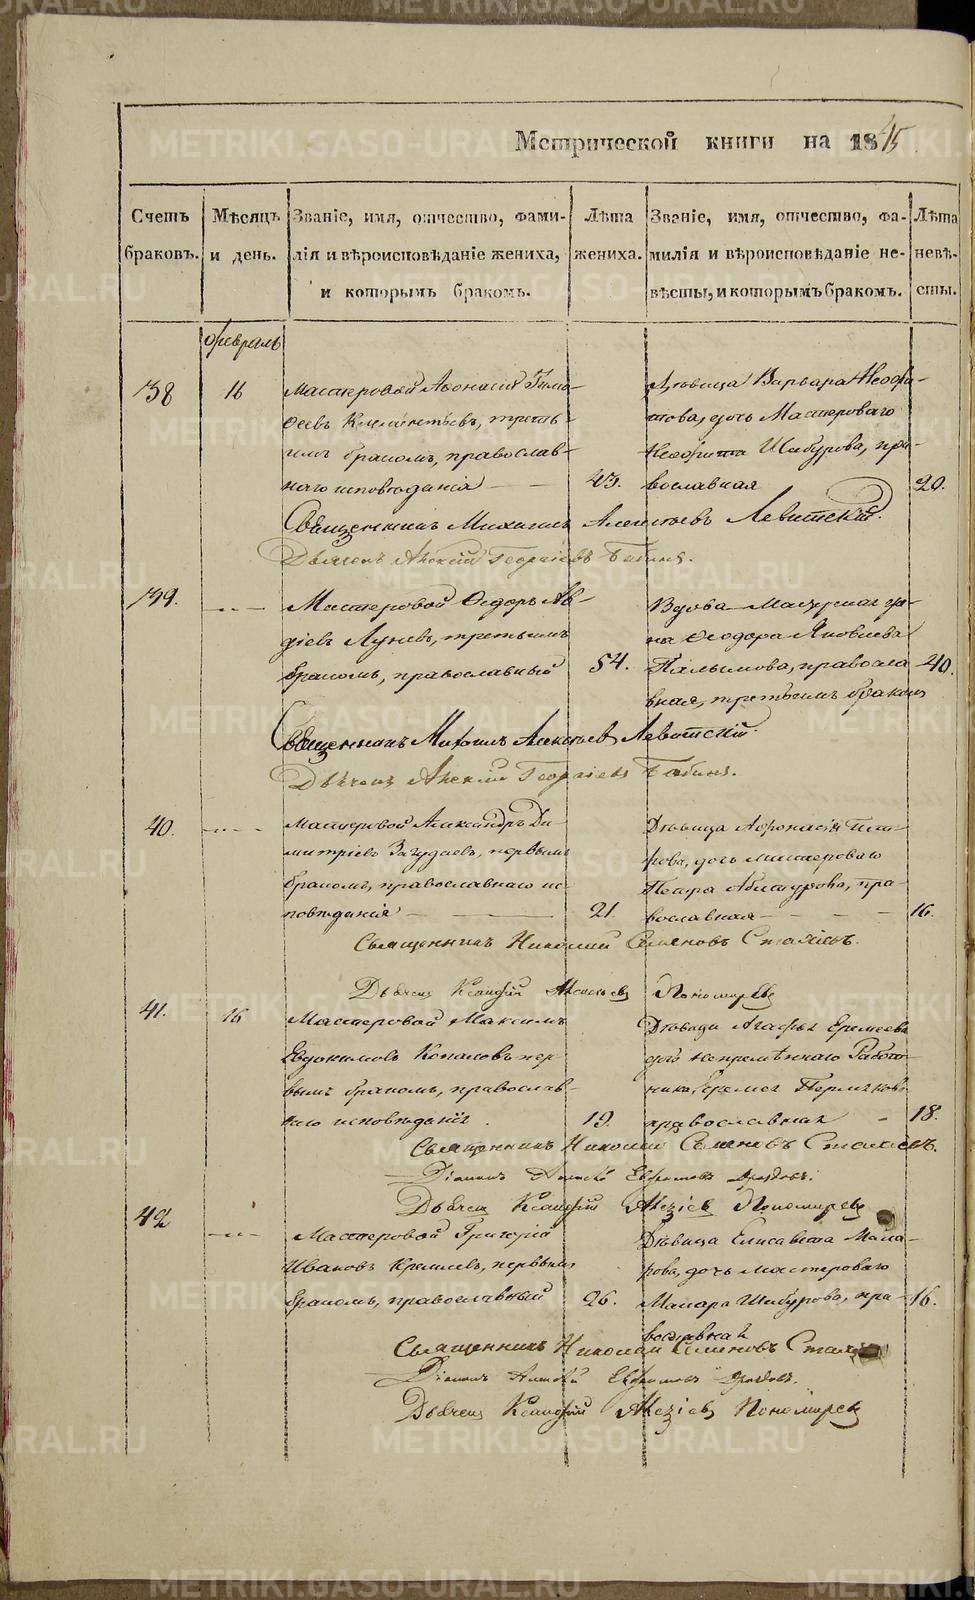 Метрической книги на 1845
Счетъ браковъ.
Мѣсяцъ и день.
Званіе, имя, отчество, фами-
лія и вѣроисповѣданіе жениха,
и которымъ бракомъ.
Лѣта жениха.
Званіе, имя, отчество, фа-
милія и вѣроисповѣданіе не-
вѣсты, и которымъ бракомъ.
Лѣта невѣ-
сты.
февраль
38
16
Мастеровой Афонасій Тимо-
ѳеевъ Климентьевъ, треть-
имъ бракомъ, православ-
наго исповѣданія
43.
Дѣвица Варвара Неофи-
това, дочь Мастероваго
Неофита Шабурова, пра-
вославная
20.
Священникъ Михаилъ Алексѣевъ Левитскій.
Дьячекъ Алексѣй Георгіевъ Бабинъ.
39.
Мастеровой Ѳедоръ Ав-
діевъ Луневъ, третьимъ
бракомъ, православный
54.
Вдова Мастерская же-
на Ѳеодора Яковлева
Пальшмова, правосла
вная, третьимъ бракомъ
40.
Священникъ Михаилъ Алексѣевъ Левитскій.
Дьячекъ Алексѣй Георгіевъ Бабинъ.
40.
Мастеровой Александръ Ди-
митріевъ Загудаевъ, первымъ
бракомъ, православнаго ис-
повѣданія
21.
Дѣвица Афонасія Пет-
рова, дочь мастероваго
Петра Абатурова, пра-
вославная
16.
Священникъ Николай Семеновъ Стаховъ.
Дьячекъ Ксанфій Алексѣевъ Пономаревъ
41.
16
Мастеровой Максимъ
Евдокимовъ Копаловъ пер-
вымъ бракомъ, православ-
наго исповѣданія
19.
Дѣвица Агафья Еремеева
дочь непремѣннаго Работ-
ника Еремея Пермякова
православная
18.
Священникъ Николай Семеновъ Стаховъ.
Діаконъ Алексѣй Евфимовъ Дроздовъ.
Дьячекъ Ксанфій Алексѣевъ Пономаревъ
42
Мастеровой Григорій
Ивановъ Крашевъ, первымъ
бракомъ, православный
26.
Дѣвица Елисавета Мака-
рова, дочь мастероваго
Макара Шабурова, пра-
вославная
16.
Священникъ Николай Семеновъ
Діаконъ Алексѣй Евфимовъ Дроздовъ.
Дьячекъ Ксанфій Алексѣевъ Пономаревъ
METRIKI.GASO-URAL.RU